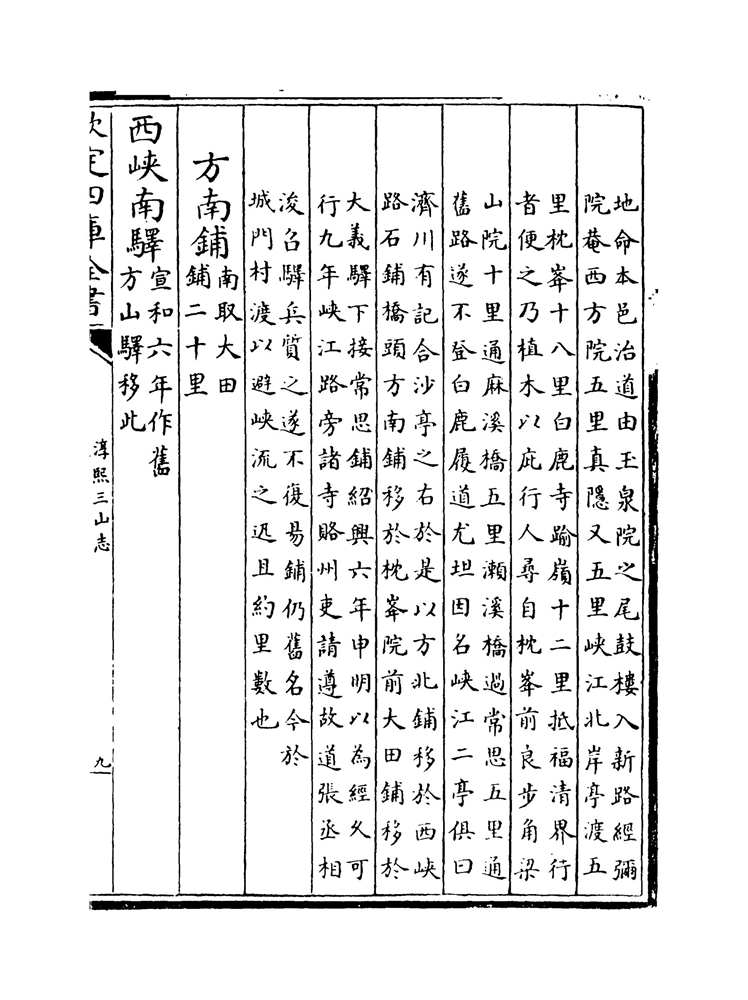 地命本邑治道由玉泉院之尾鼓樓入新路經彌
院菴西方院五里真隱又五里峽江北岸亭渡五
里枕峯十八里白鹿寺踰嶺十二里抵福清界行
者便之乃植木以庇行人尋自枕峯前良步角梁
山院十里通麻溪橋五里瀨溪橋過常思五里通
舊路遂不登白鹿履道尤坦因名峽江二亭俱曰
濟川有記合沙亭之右於是以方北鋪移於西峽
路石鋪橋頭方南鋪移於枕峯院前大田鋪移於
大義驛下接常思鋪紹興六年申明以為經乆可
行九年峽江路旁諸寺賂州吏請遵故道張丞相
浚召驛兵質之遂不復易鋪仍舊名今於
城門村渡以避峽流之迅且約里數也
方南鋪南取大田
鋪二十里
西峽南驛宣和六年作舊
方山驛移此
欽定四庫全書
淳熙三山志
九